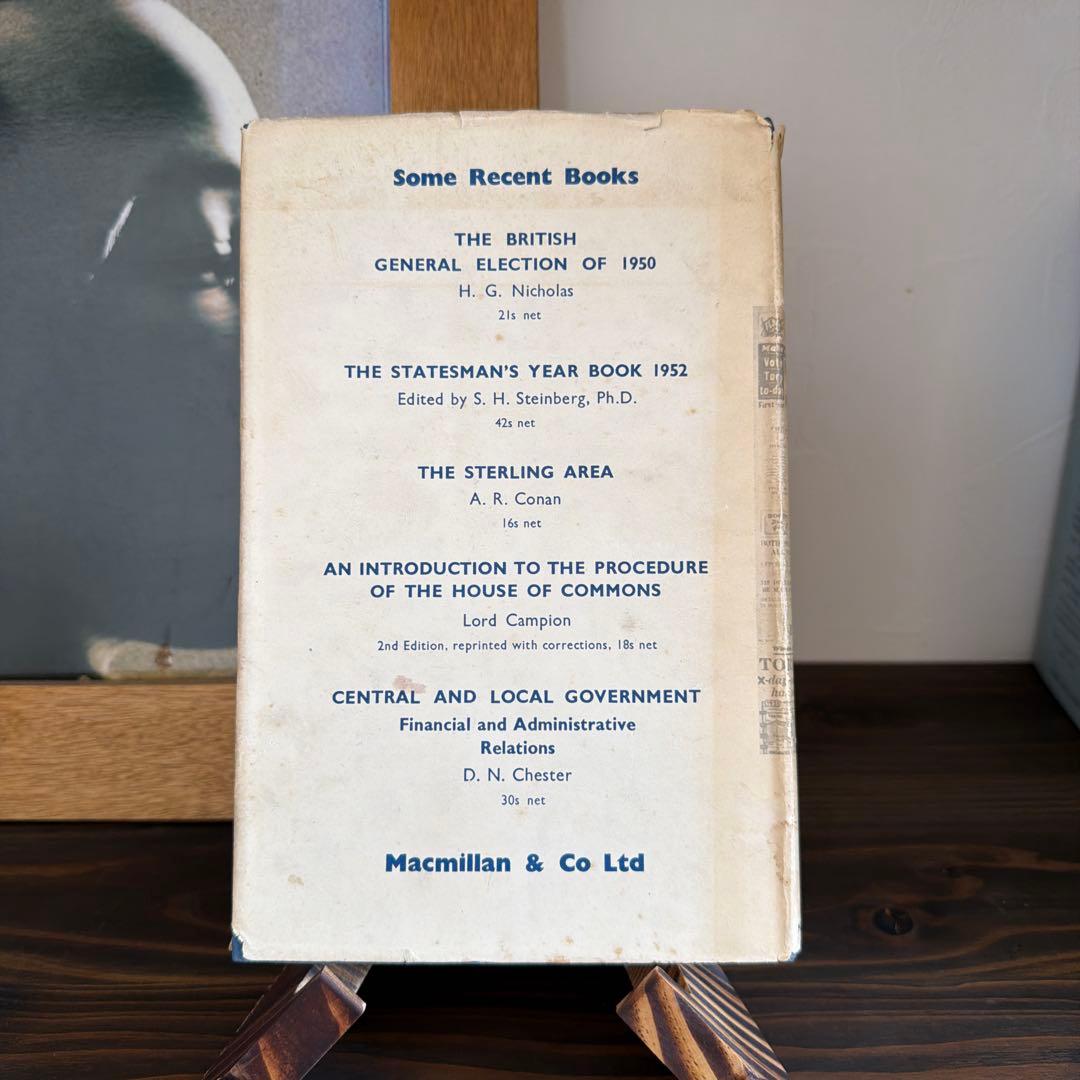 Some Recent Books
THE BRITISH
GENERAL ELECTION OF 1950
H. G. Nicholas
21s net
THE STATESMAN'S YEAR BOOK 1952
Edited by S. H. Steinberg, Ph.D.
42s net
THE STERLING AREA
A. R. Conan
16s net
AN INTRODUCTION TO THE PROCEDURE
OF THE HOUSE OF COMMONS
Lord Campion
2nd Edition, reprinted with corrections, 18s net
CENTRAL AND LOCAL GOVERNMENT
Financial and Administrative
Relations
D. N. Chester
30s net
Macmillan & Co Ltd